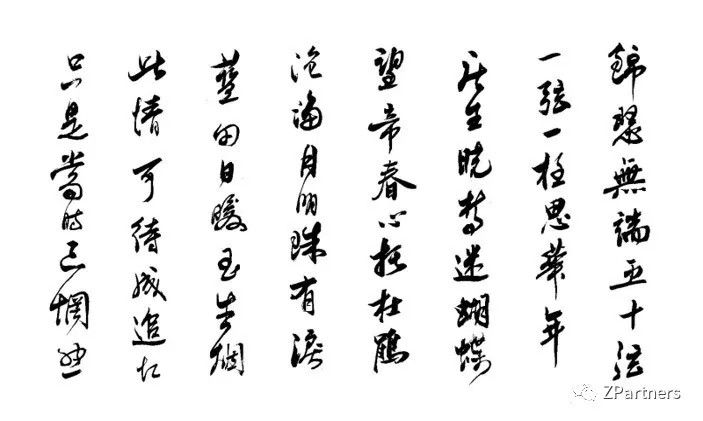 錦瑟無端五十弦
一弦一柱思華年
莊生曉夢迷蝴蝶
望帝春心托杜鵑
滄海月明珠有淚
藍田日暖玉生烟
此情可待成追忆
只是當時已惘然
ZPartners